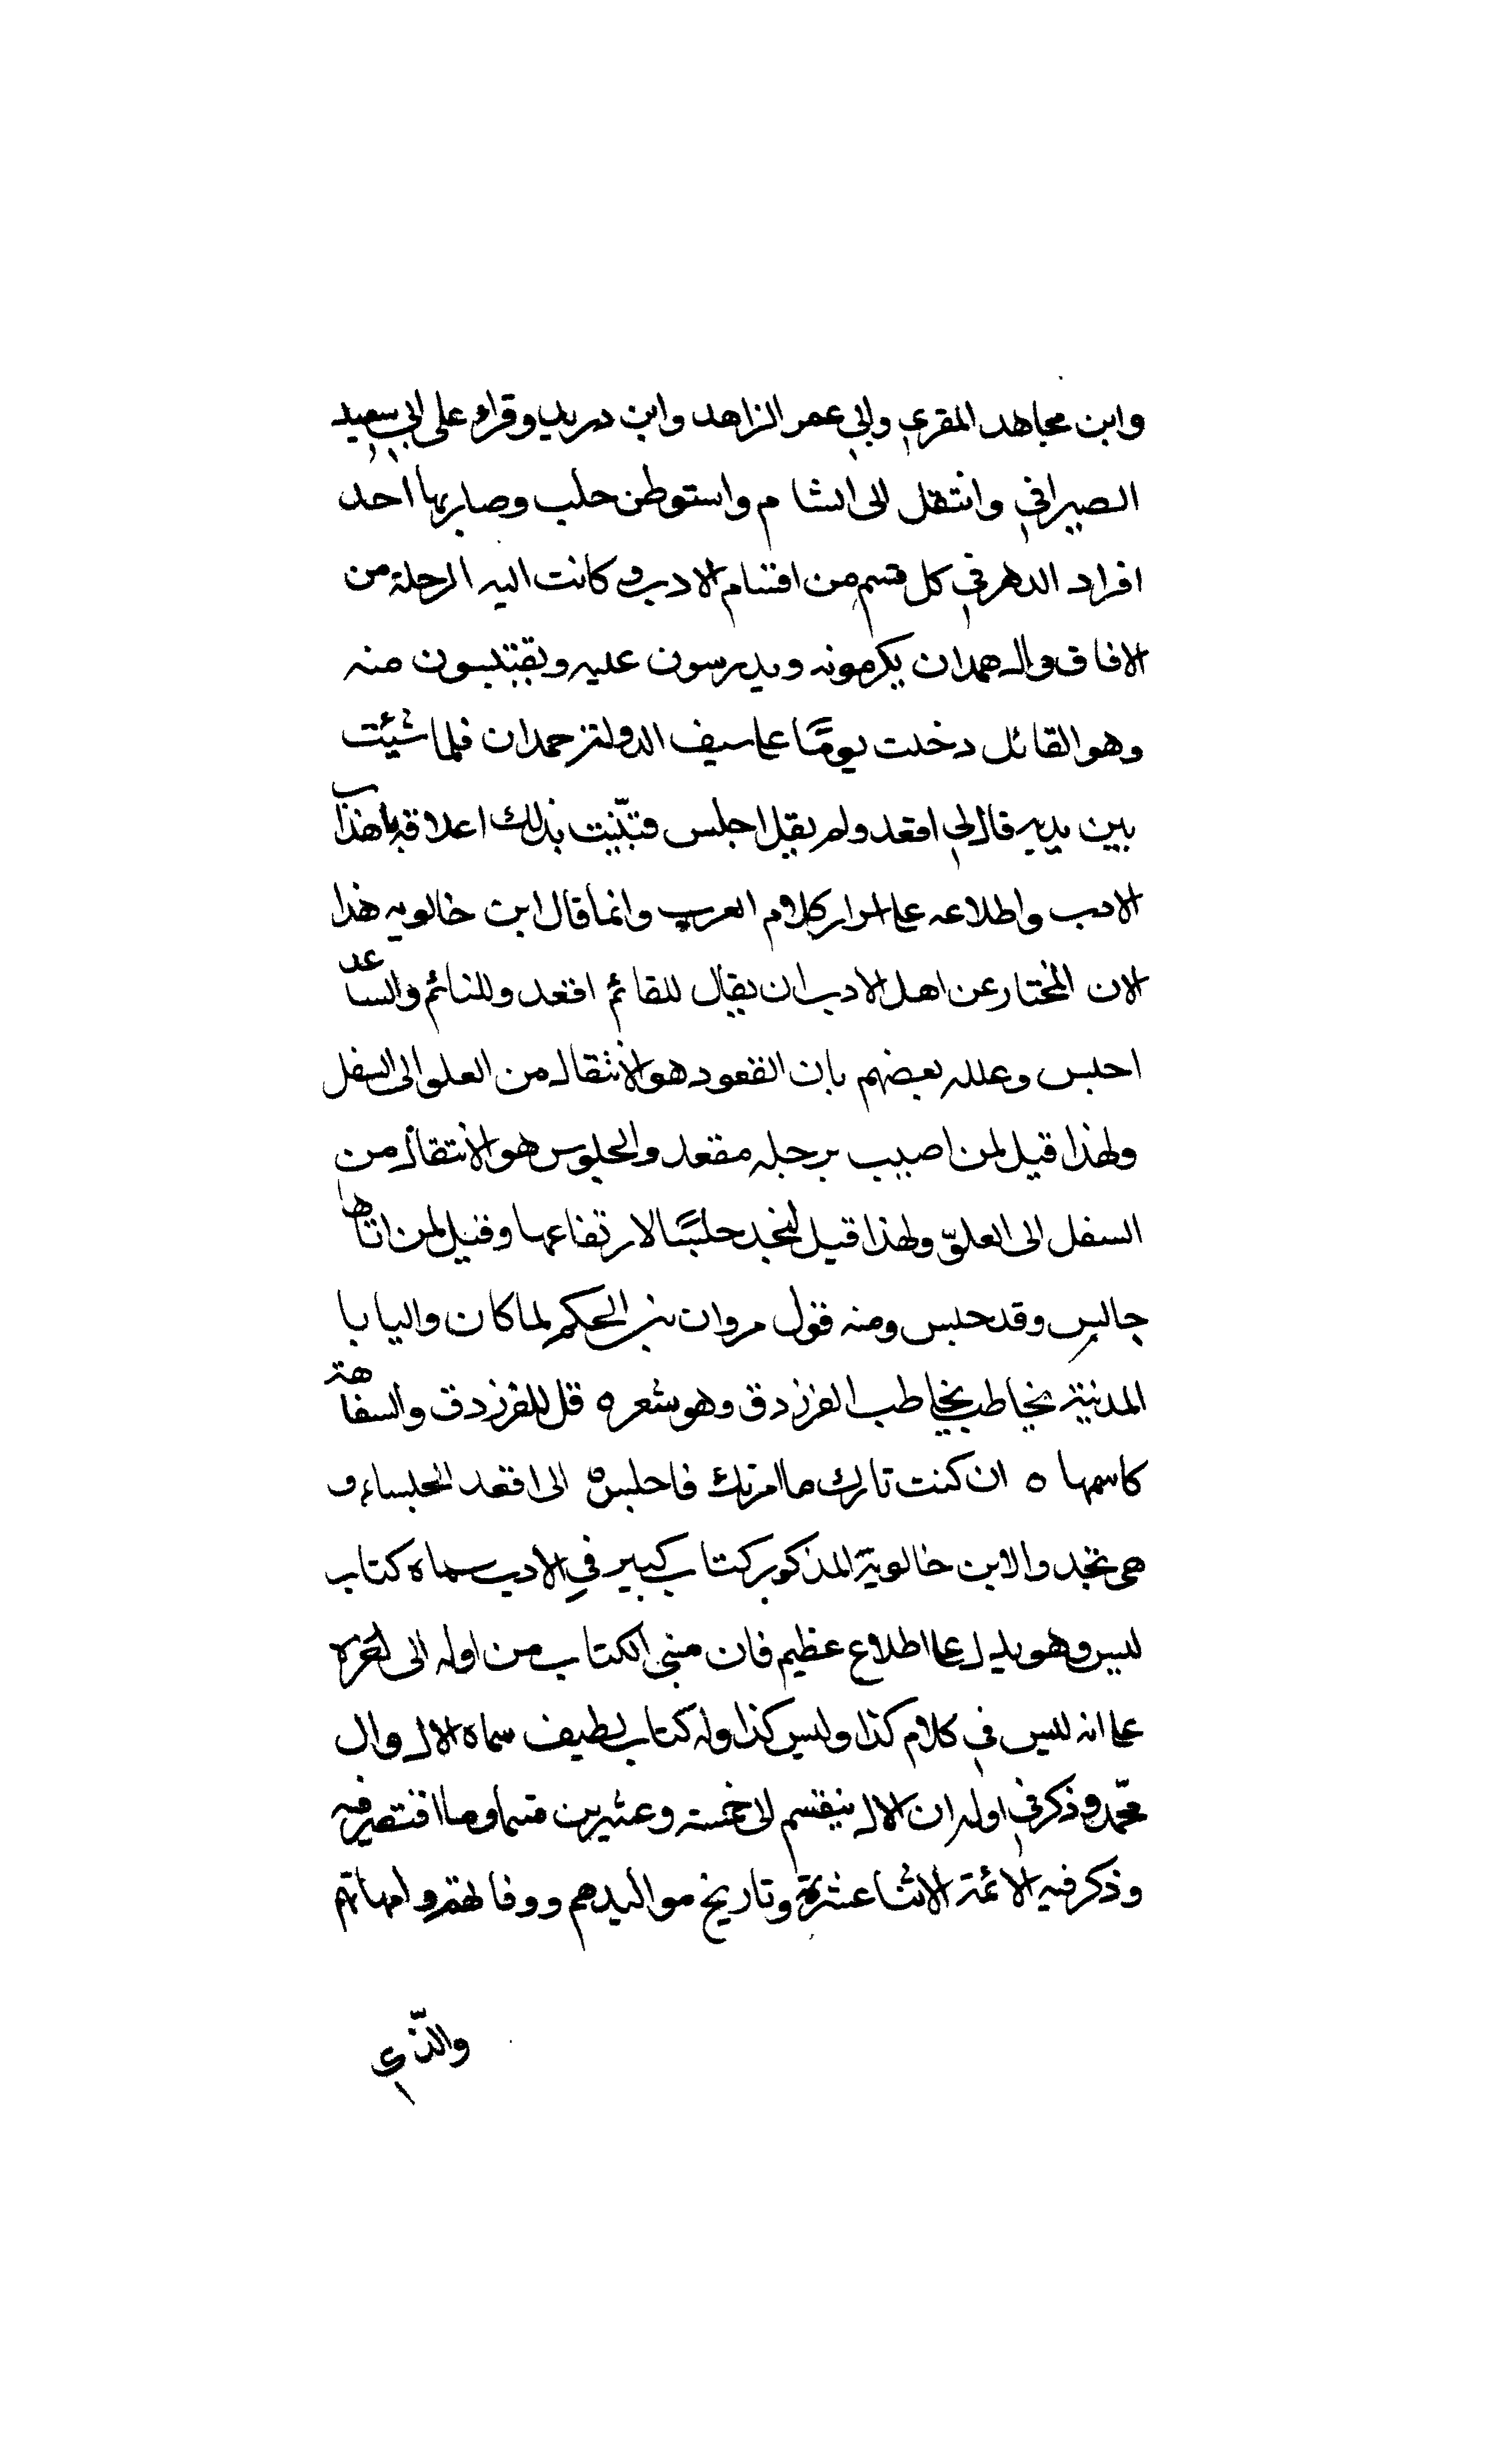 وابن مجاهد المقري وابي عمر الزاهد وابن دريد وقراء على ابي سعيد
الصيرافي وانتقل الى الشام واستوطن حلب وصار بها احد
افراد الدهر في كل قسم من اقسام الادب وكانت اليه الرحلة من
الافاق وال همدان يكرمونه ويدرسون عليه ويقتبسون منه
وهو القائل دخلت يومًا على سيف الدولة حمدان فلما شيئت
بين يديه قال لي اقعد ولم يقل اجلس فتبّنيت بذلك اعلاقه باهذاب
الادب واطلاعه على اسرار كلام العرب وانما قال ابن خالويه هذا
الان المختار عن اهل الادب ان يقال للقائم اقعد وللنائم والساعد
اجلس وعلله بعضهم بان القعود هو الانتقال من العلو الى السفل
ولهذا قيل لمن اصيب برجله مقعد والجلوس هو الانتقال من
السفل الى العلوّ ولهذا قيل لنجد جلسًا لارتفاعها وقيل لمن اتاها
جالس وقد جلس ومنه قول مروان بن الحكم لما كان واليا با
المدنية يخاطب يخاطب الفرزدق وهو شعره قل للفرزدق والسفاهة
كاسمها ه ان كنت تارك ما امرتك فاجلس ه الى اقعد الجلساء و
هى نجد والابن خالوية المذكور كتاب كبير في الادب سماه كتاب
ليس وهو يدل على اطلاع عظيم فان مبنى الكتاب من اوله الى اخره
على انه ليس في كلام كذا وليس كذا وله كتاب لطيف سماه الال وال
محمّد وذكر في اوله ان الال ينقسم الى خمسة وعشرين قسما وما اقتصر فيه
وذكر فيه الائمة الاثنا عشرية وتاريخ مواليدهم ووفاتهم وامهاتهم
والذّي